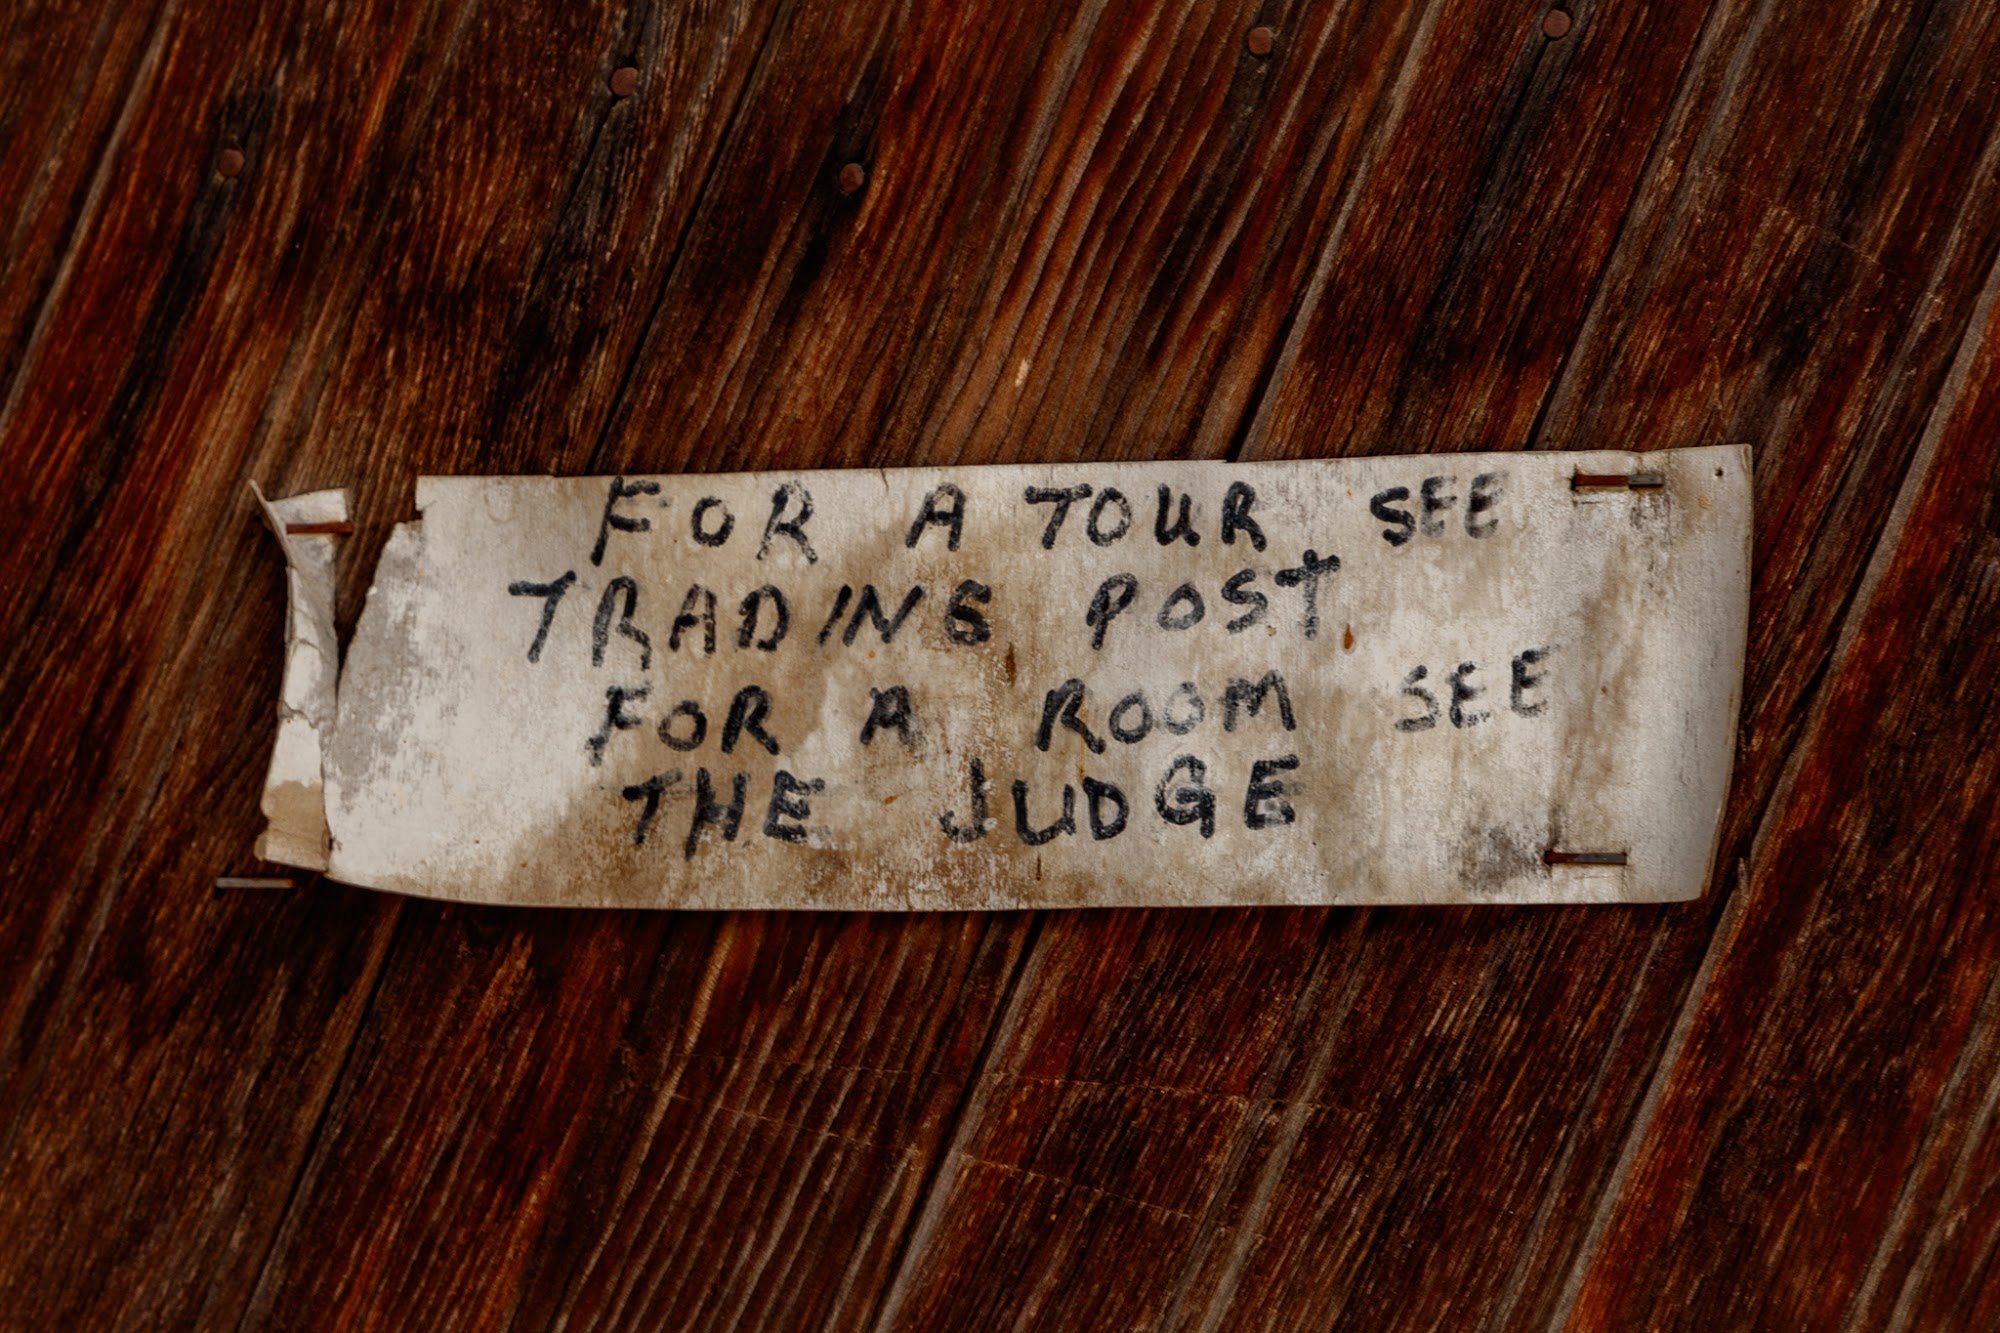 FOR A TOUR SEE
TRADING POST.
FOR A ROOM SEE
THE JUDGE